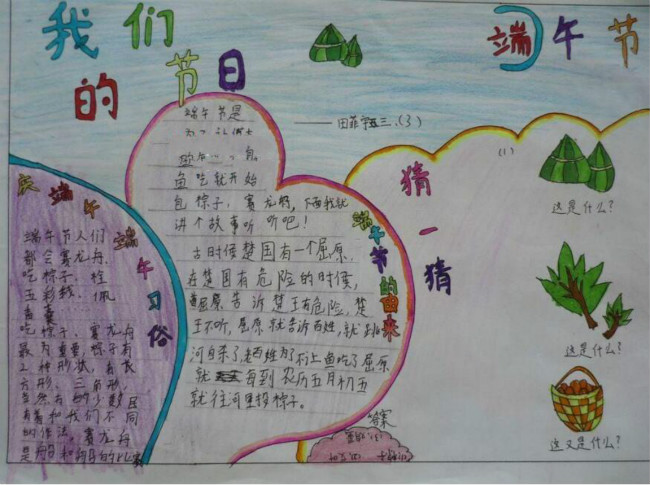 我们
的节日
端午节
田菲宇五三.(3)
端午节是
包
鱼吃就开始
包粽子,赛龙舟,下面我就
讲个故事听听吧!
古时候楚国有一个屈原,
在楚国有危险的时候,
屈原告诉楚王有危险,楚
王不听,屈原就告诉百姓,就跳
河自杀了,老百姓为了不让鱼吃了屈原
就每到农历五月初五
就往河里投粽子。
端午节的由来
庆端午
端午习俗
端午节人们
都会赛龙舟,
吃粽子,挂
五彩线,佩
香囊
吃粽子,赛龙舟
最为重要,粽子有
2种形状,有长
方形,三角形,
当然有的少数民
有着和我们不同
的作法,赛龙舟
猜一猜
(1)
这是什么?
这是什么?
这又是什么?
答案